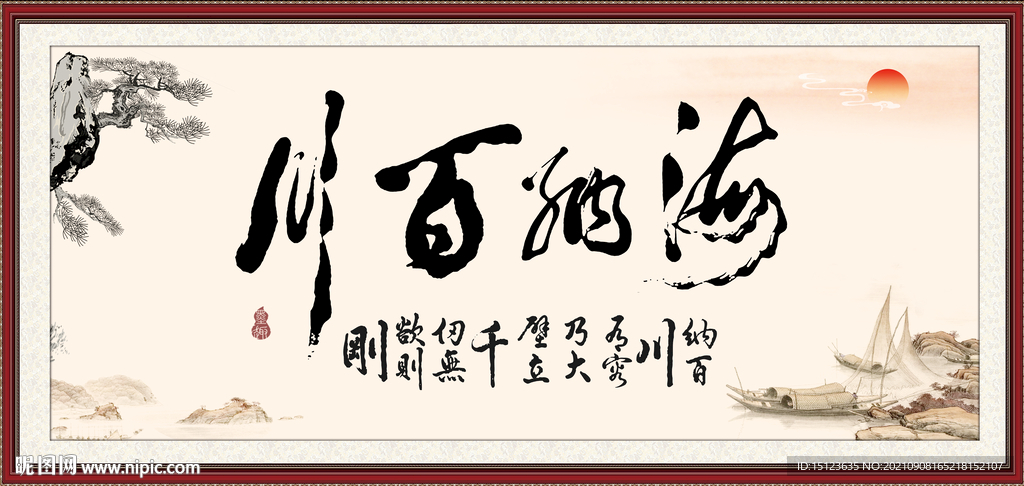 海納百川
納百川有容乃大壁立千仞無欲則剛
昵图网 www.nipic.com
ID:15123635 NO:20210908165218152107